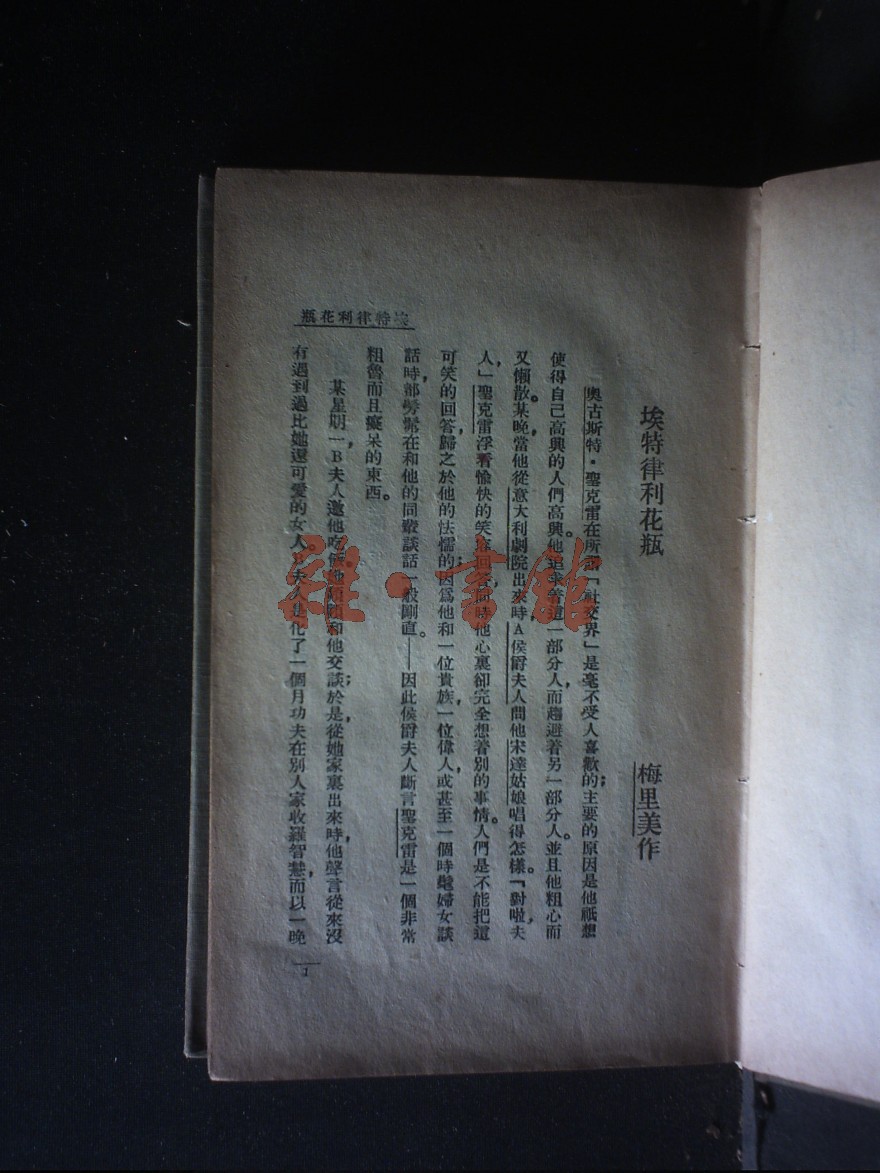 埃特律利花瓶
梅里美作
奧古斯特·聖克雷在所謂「社交界」是毫不受人喜歡的；主要的原因是他祇想
使得自己高興的人們高興。他追求着這一部分人，而趨避着另一部分人。並且他粗心而
又懶散。某晚，當他從意大利劇院出來時，A侯爵夫人問他宋達姑娘唱得怎樣。「對啦，夫
人，」聖克雷浮着愉快的笑容回答，同時他心裏卻完全想着別的事情。人們是不能把這
可笑的回答歸之於他的怯懦的；因爲他和一位貴族，一位偉人，或甚至一個時髦婦女談
話時，都髣髴在和他的同輩談話一般剛直。——因此侯爵夫人斷言聖克雷是一個非常
粗魯而且癡呆的東西。
某星期一，B夫人邀他吃飯。她頻頻和他交談；於是，從她家裏出來時，他聲言從來沒
有遇到過比她還可愛的女人。B夫人是化了一個月功夫在別人家收羅智慧，而以一晚
埃特律利花瓶
1
雜·書館